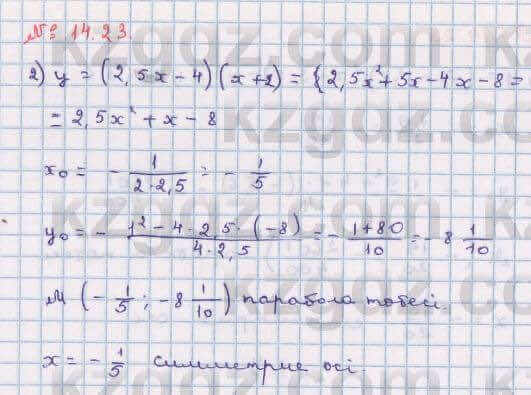 № 14.23
2) y = (2,5x - 4)(x + 2) = {2,5x² + 5x - 4x - 8 =
= 2,5x² + x - 8
x₀ = - 1/(2·2,5) = - 1/5
y₀ = - (1² - 4·2,5·(-8))/(4·2,5) = - (1+80)/10 = - 8 1/10
M (- 1/5 ; -8 1/10) парабола төбесі.
x = - 1/5 симметрие осі.